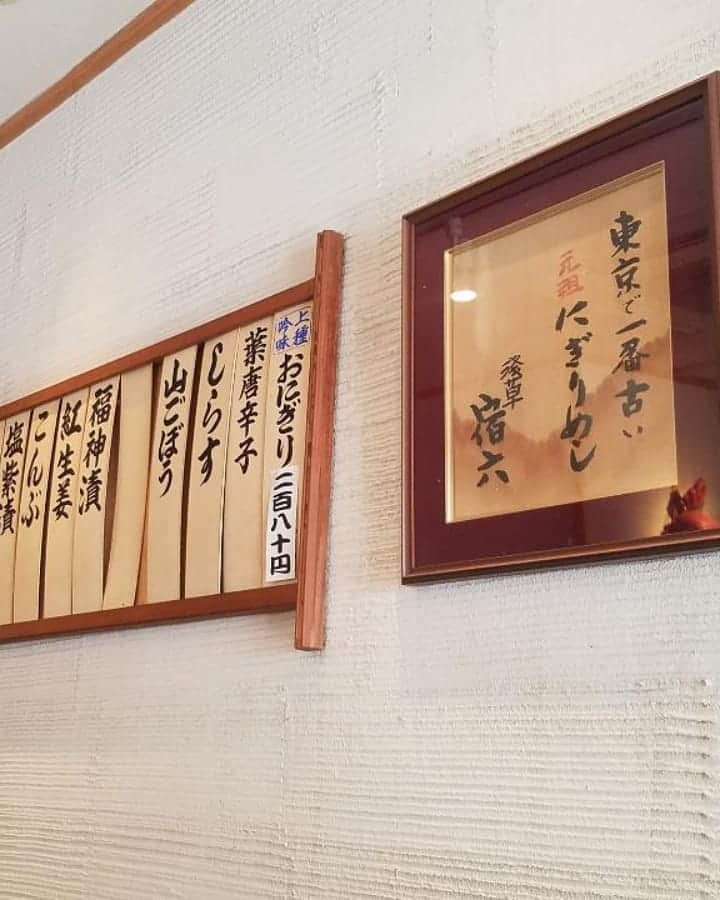 東京で一番古い
元祖 にぎりめし
浅草 宿六
上種吟味 おにぎり 二百八十円
葉唐辛子
しらす
山ごぼう
福神漬
紅生姜
こんぶ
塩紫漬